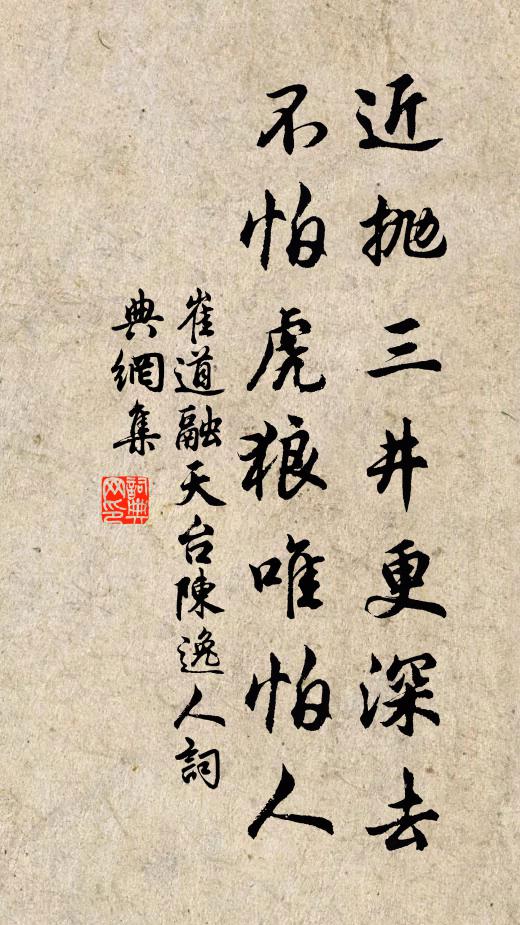 近抛三井更深去
不怕虎狼唯怕人
崔道融天台陳逸人詞
典網集
詞典网印